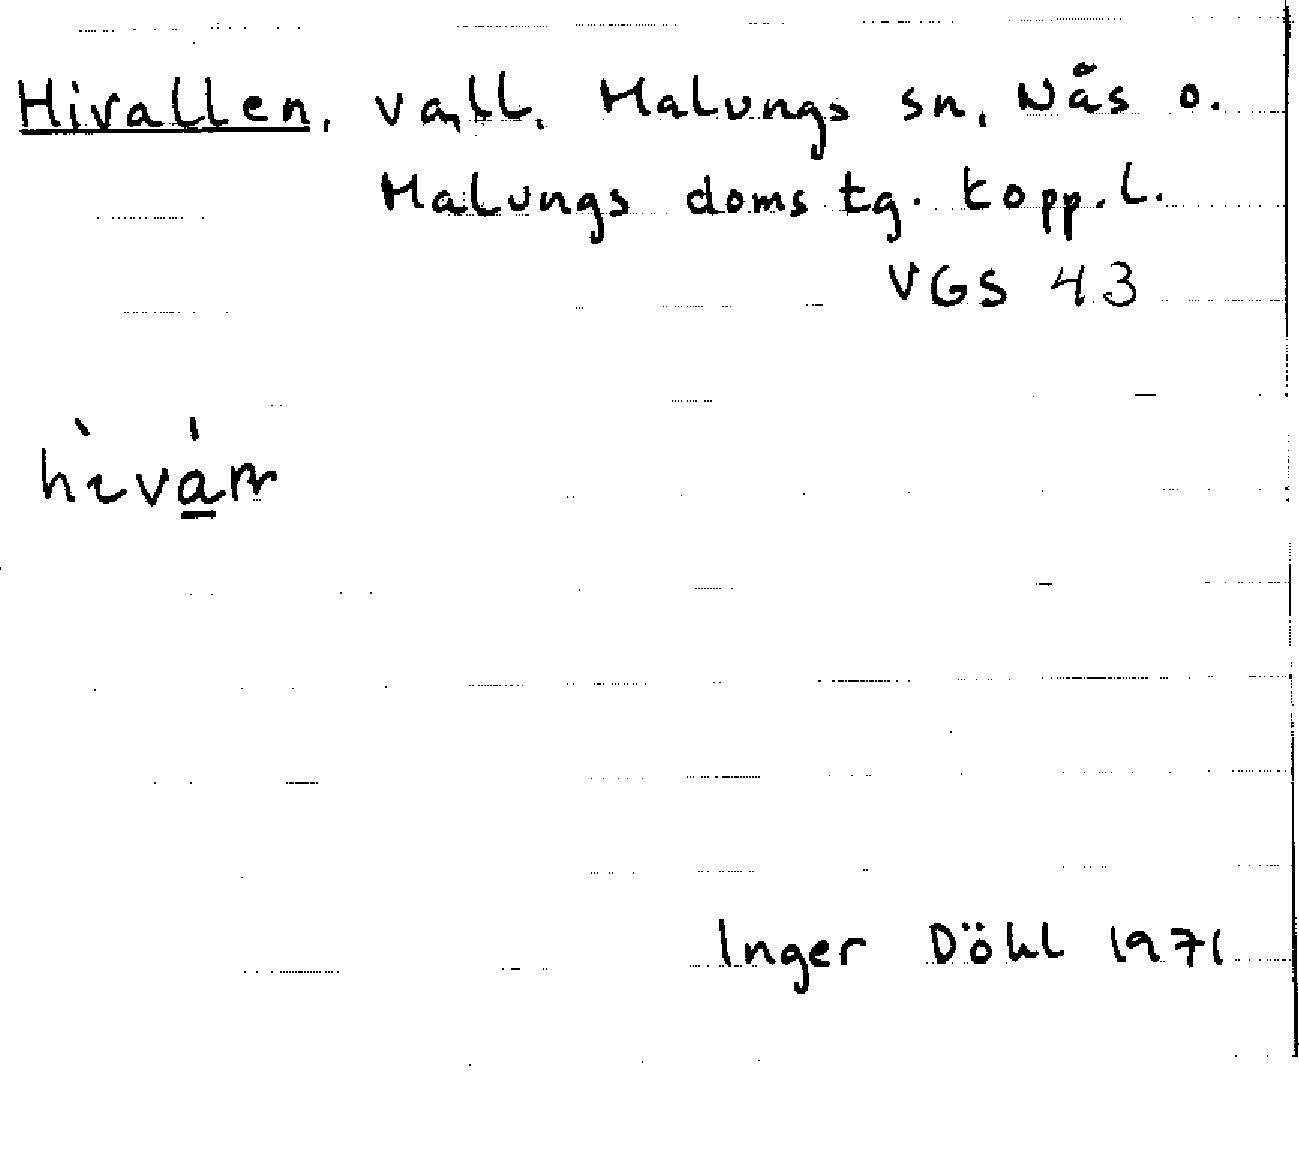 Hivallen, vall. Malungs sn, Nås o.
Malungs doms tg. Kopp. l.
VGS 43
Inger Döhl 1971